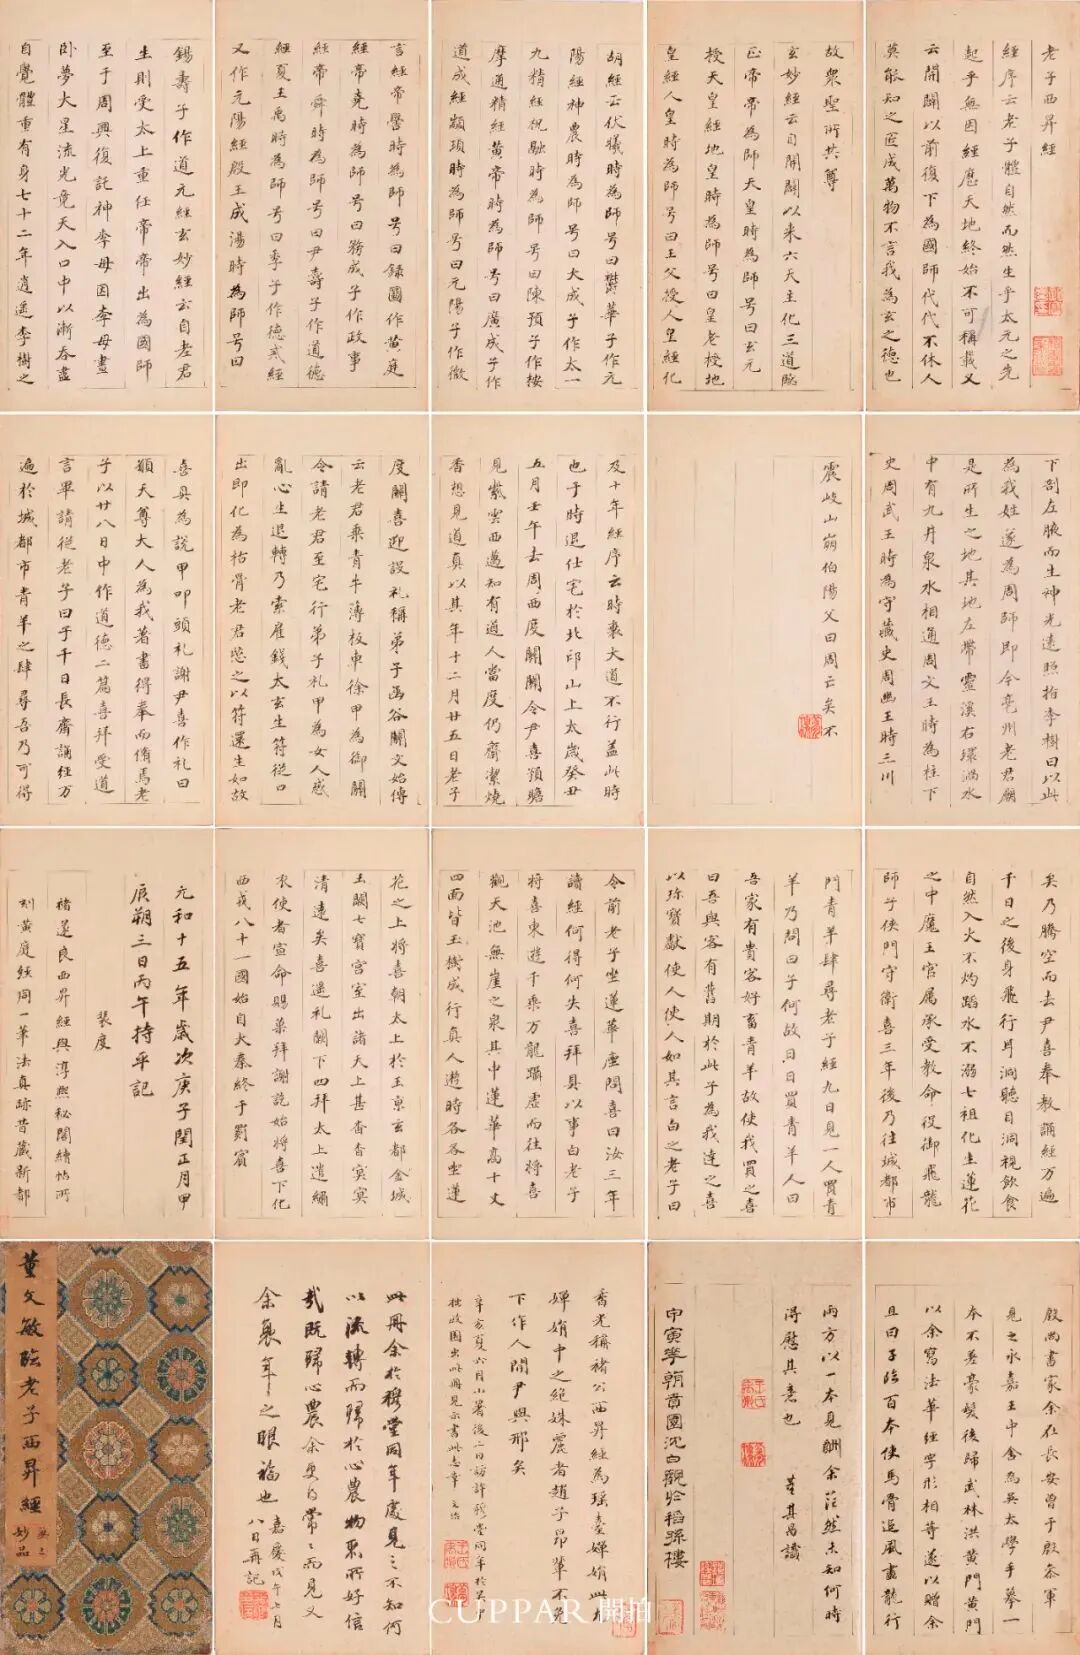 老子西昇經
經序云老子體自然而然生乎太元之先
起乎無因經歷天地終始不可稱載又
云開闢以前復下為國師代代不休人
莫能知之匠成萬物不言我為玄之德也
故眾聖所共尊
玄妙經云自開闢以來六天主化三道臨
正帝帝為師天皇時為師号曰玄元
授天皇經地皇時為師号曰皇老授地
皇經人皇時為師号曰王父授人皇經化
胡經云伏犧時為師号曰欝華子作元
陽經神農時為師号曰大成子作太一
九精經祝融時為師号曰陳預子作按
摩通精經黃帝時為師号曰廣成子作
道成經顓頊時為師号曰元陽子作微
言經帝嚳時為師号曰録圖作黃庭
經帝堯時為師号曰務成子作政事
經帝舜時為師号曰尹壽子作道德
經夏王禹時為師号曰季子作德戒經
又作元陽經殷王成湯時為師号曰
錫壽子作道元經玄妙經云自老君
生則受太上重任帝帝出為國師
至于周興復託神李母因李母晝
卧夢大星流光竟天入口中以漸吞盡
自覺體重有身七十二年逍遥李樹之
下剖左腋而生神光遠照指李樹曰以此
為我姓遂為周師即今亳州老君廟
是所生之地其地左帶靈溪右環渦水
中有九井泉水相通周文王時為柱下
史周武王時為守藏史周幽王時三川
震岐山崩伯陽父曰周云矣不
及十年經序云時衰大道不行蓋此時
也于時退仕宅於北邙山上太歲癸丑
五月壬午去周西度關關令尹喜預瞻
見紫雲西邁知有道人當度仍齋潔燒
香想見道真以其年十二月廿五日老子
度關喜迎設礼稱弟子函谷關文始傳
云老君乘青牛薄板車徐甲為御關
令請老君至宅行弟子礼甲為女人惑
亂心生退轉乃索雇錢太玄生符從口
出即化為枯骨老君愍之以符還生如故
喜具為說甲叩頭礼謝尹喜作礼曰
願天尊大人為我著書得奉而脩焉老
子以廿八日中作道德二篇喜拜受道
言畢請從老子曰子千日長齋誦經万
遍於城都市青羊之肆尋吾乃可得
矣乃騰空而去尹喜奉教誦經万遍
千日之後身飛行耳洞聽目洞視飲食
自然入火不灼蹈水不溺七祖化生蓮花
之中魔王官属承受教命役御飛龍
師子俠門守衛喜三年後乃往城都市
門青羊肆尋老子經九日見一人買青
羊乃問曰子何故日日買青羊人曰
吾家有貴客好畜青羊故使我買之喜
曰吾與客有舊期於此子為我達之喜
以珎寶獻使人使人如其言白之老子曰
令前老子坐蓮華座問喜曰汝三年
讀經何得何失喜拜具以事白老子
將喜東遊千乘万龍躡虛而往將喜
觀天池無崖之泉其中蓮華高十丈
四面皆玉機成行真人遨時各各坐蓮
花之上將喜朝太上於玉京玄都金城
玉闕七寶宮室出諸天上甚杳杳冥冥
清遠矣喜遥礼闕下四拜太上遣繡
衣使者宣命賜藥拜謝訖始將喜下化
西戎八十一國始自大秦終于罽賓
元和十五年歲次庚子閏正月甲
辰朔三日丙午持平記
裴度
褚遂良西昇經與淳熙秘閣續帖所
刻黃庭經同一筆法真跡昔藏新都
殷尚書家余在長安曾于殷參軍
見之永嘉王中舍為吳太學手摹一
本不差毫髮後歸武林洪黃門黃門
以余寫法華經字形相等遂以贈余
且曰子臨百本使馬骨追風畫龍行
雨方以一本見酬余茫然未知何時
得慰其意也 董其昌識
甲寅季朝賁園沈白觀於稻孫樓
香光稱褚公西昇經為瑶臺嬋娟此
嬋娟中之絕姝麗者趙子昂輩不免
下作人間尹與邢矣
辛亥夏六月小暑後二日訪許穆堂同年於吳中
拙政園出此冊見示書此志幸 文治
此冊余於穆堂同年處見之不知何
以流轉而歸於心農物聚所好信
哉既歸心農余更得常常而見又
余衰年之眼福也 嘉慶戊午七月
八日再記
董文敏臨老子西昇經
妙品
CUPPAR 開拍